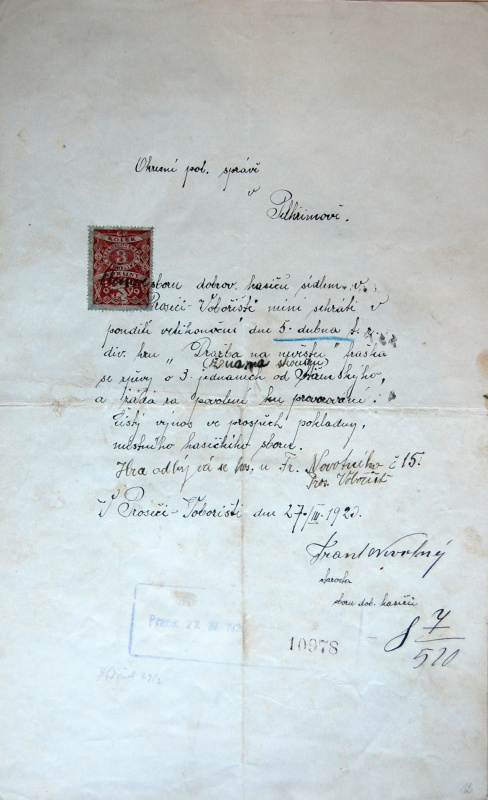 Okresní pol. správě
v
Pelhřimově.
KOLEK
3
KORUNY
sboru dobrov. hasičů sídlem v
Prosiči-Vobořišti míní sehráti v
pondělí velikonoční dne 5. dubna t.
div. hru „Dražba na nevěstu" fraška
známá
se zpěvy o 3. jednáních od
a žádá za povolení ku provozování.
Čistý výnos ve prospěch pokladny
místního hasičského sboru.
Hra odbývá se hos. u Fr. Novotného č 15.
Pros. Vobořišt
V Prosiči-Vobořišti dne 27./III. 1920.
Frant Novotný
starosta
sboru dob. hasičů
Praes. 27. III.
10978
8 7/520